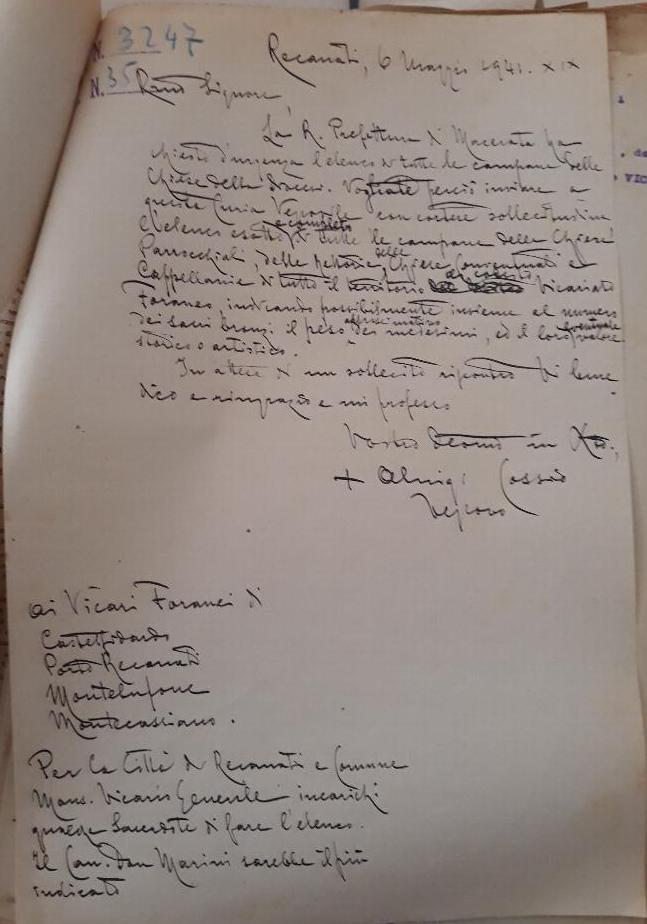 N. 3247
N. 35
Recanati, 6 Maggio 1941. XIX
Rmo Signore,
La R. Prefettura di Macerata ha
chiesto d'urgenza l'elenco di tutte le campane delle
Chiese della Diocesi. Vogliate perciò inviare a
questa Curia Vescovile con cortese sollecitudine
l'elenco esatto e completo di tutte le campane delle Chiese
Parrocchiali, delle Chiese Conventuali e
Cappellanie di tutto il territorio di codesto Vicariato
Foraneo, indicando possibilmente insieme al numero
dei sacri bronzi il peso approssimativo dei medesimi, ed il loro eventuale valore
storico o artistico.
In attesa di un sollecito riscontro Vi bene
dico e ringrazio e mi professo
Vostro in Xto.,
+ Aluigi Cossio
Vescovo
Ai Vicari Foranei di
Castelfidardo
Porto Recanati
Montelupone
Montecassiano.
Per la Città di Recanati e Comune
Mons. Vicario Generale incarichi
qualche Sacerdote di fare l'elenco.
Il Can. Don Marini sarebbe il più
indicato